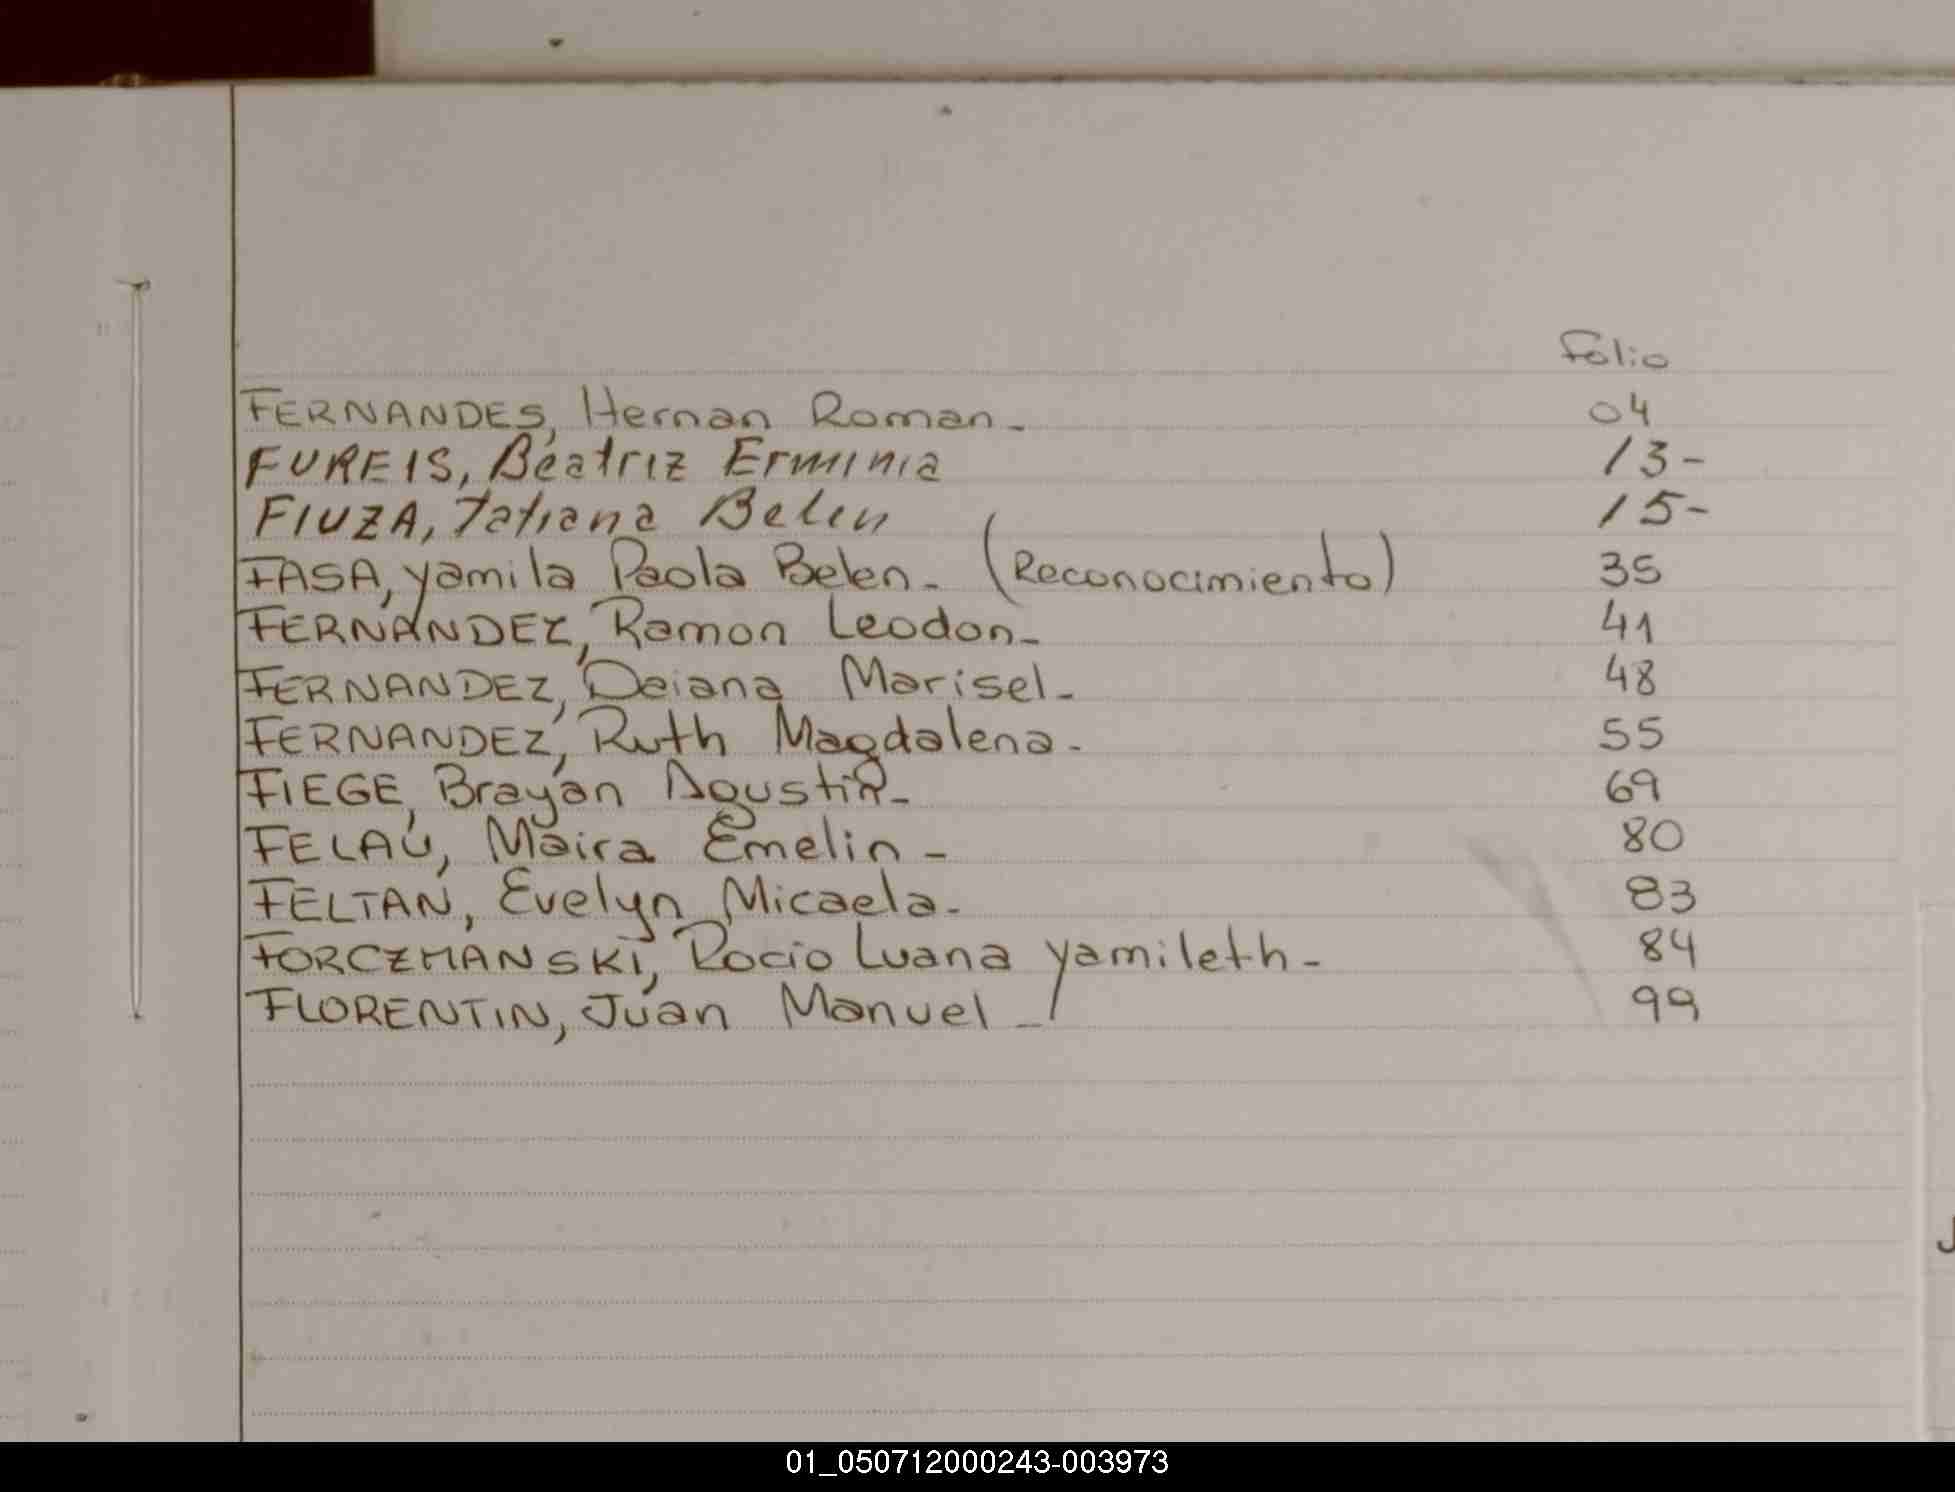 Folio
FERNANDES, Hernan Roman- 04
FUREIS, Beatriz Erminia 13-
FIUZA, Tatiana Belen 15-
FASA, yamila Paola Belen- (Reconocimiento) 35
FERNANDEZ, Ramon Leodon- 41
FERNANDEZ, Daiana Marisel- 48
FERNANDEZ, Ruth Magdalena- 55
FIEGE, Brayan Agustin- 69
FELAU, Maira Emelin- 80
FELTAN, Evelyn Micaela- 83
FORCZMANSKI, Rocio Luana yamileth- 84
FLORENTIN, Juan Manuel- 99
J
01_050712000243-003973